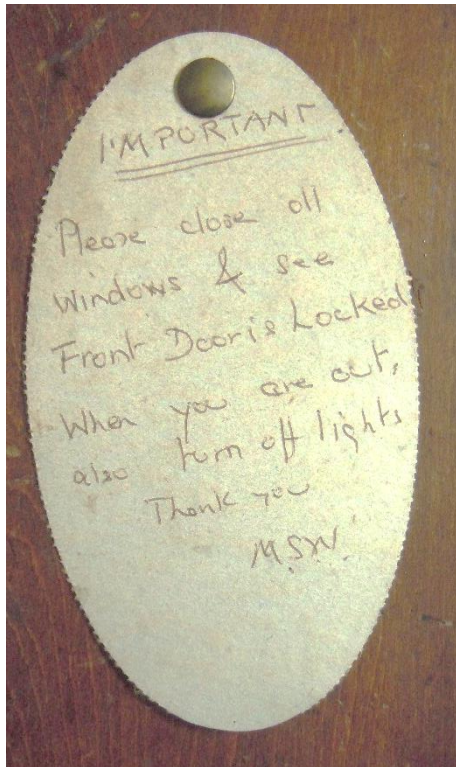 IMPORTANT
Please close all
Windows & see
Front Door is Locked
When you are out,
also turn off lights
Thank you
M.S.W.